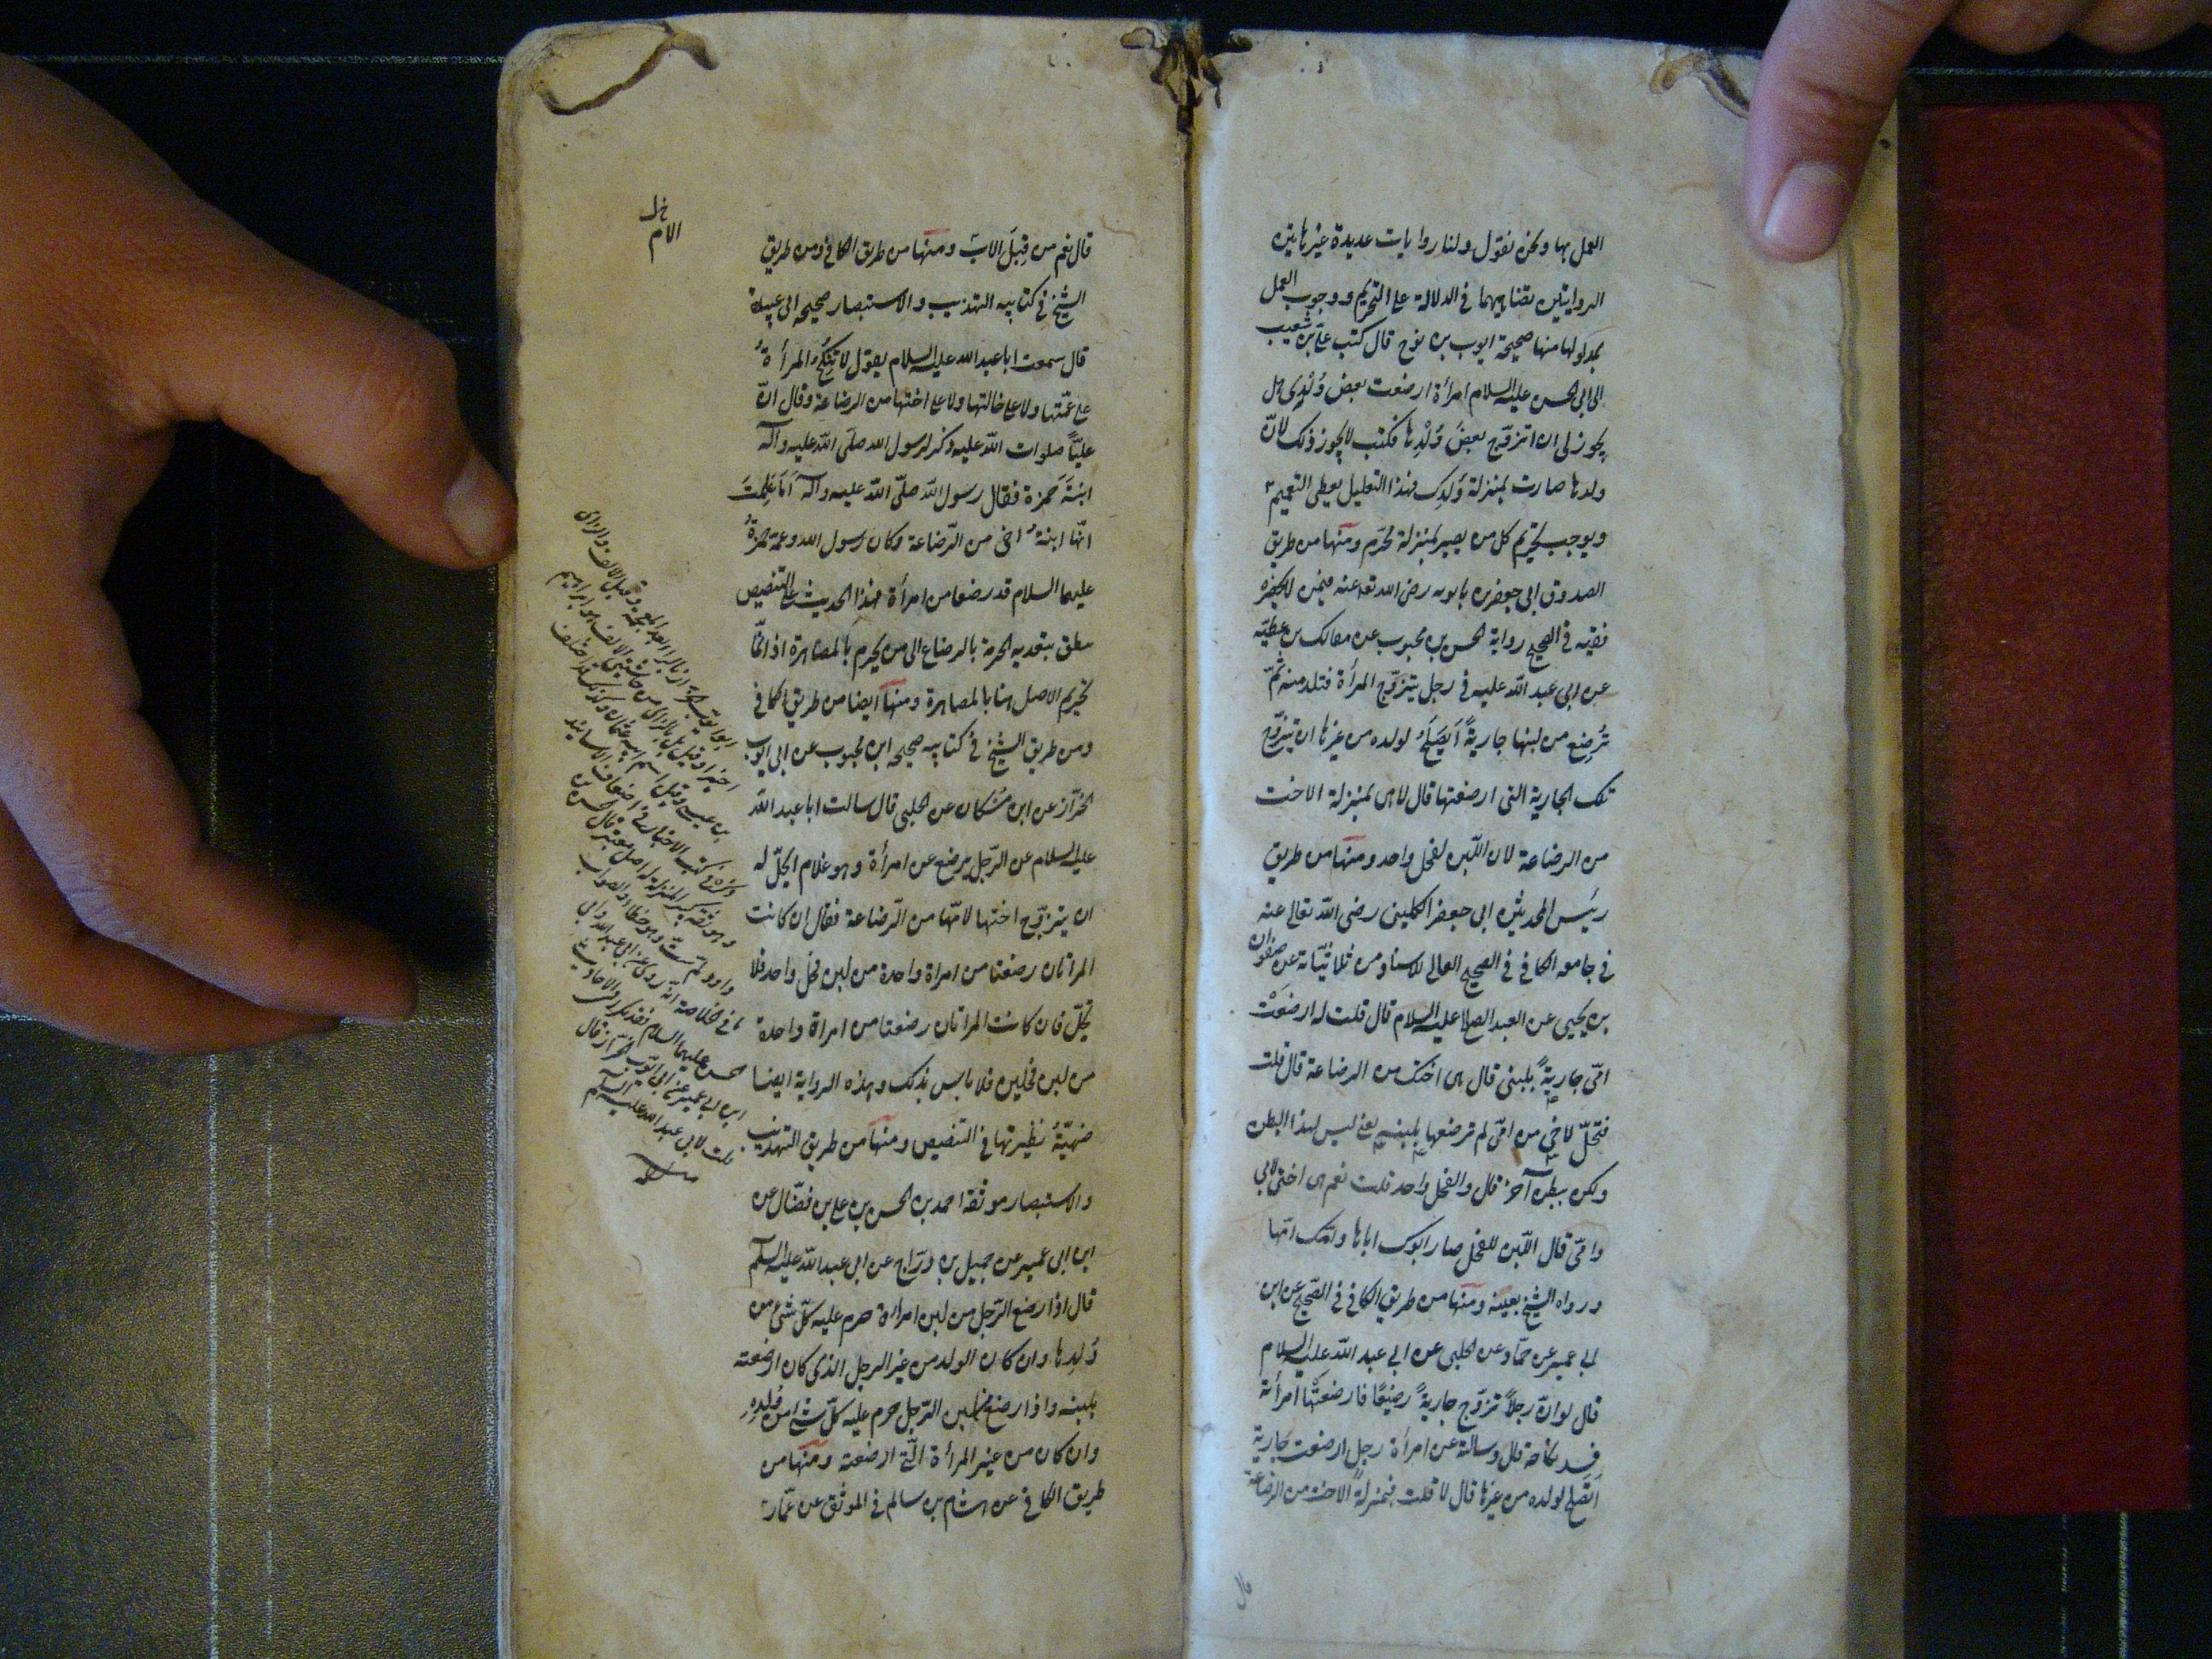 العمل بها ونحن نقول ولنا روايات عديدة غير هاتين
الروايتين تضاهيهما في الدلالة على التحريم ووجوب العمل
بمدلولها منها صحيحة ايوب بن نوح قال كتب علي بن شعيب
الى ابى الحسن عليه السلام امرأة ارضعت بعض وُلْدِى هل
يجوز لى ان اتزوّج بعضَ وُلْدِها فكتب لا يجوز ذلك لانّ
ولدها صارت بمنزلة وَلَدِك فهذا التعليل يعطى التعميم
ويوجب تحريم كل من يصير بمنزلة محرّم ومنها من طريق
الصدوق ابى جعفر بن بابويه رضى الله تعه عنه فيمن لا يحضره
فقيه في الصحيح رواية الحسن بن محبوب عن مالك بن عطيّه
عن ابى عبد الله عليه في رجل يتزوّج المرأة فتلد منه ثمّ
تُرضِع من لبنها جاريةً اَيَصْلَحُ لولده من غيرها ان يتزوّج
تلك الجارية التى ارضعتها قال لا هى بمنزلة الاخت
من الرضاعة لان اللّبن لفحل واحد ومنها من طريق
رئيس المحدثين ابى جعفر الكلينى رضى الله تعالى عنه
في جامعه الكافى في الصحيح العالى الاسناد من ثلاثيّاته عن صفوان
بن يحيى عن العبد الصالح عليه السلام قال قلت له ارضعَتْ
امّى جاريةً بلبنى قال هى اختك من الرضاعة قال قلت
فتحلّ لاخى من امّى لم ترضعها بلبنه يعنى ليس لهذا البطن
ولكن ببطن آخر قال والفحل واحد قلت نعم هى اختى لابى
وامّى قال اللّبن للفحل صار ابوك اباها وامّك امّها
ورواه الشيخ بعينه ومنها من طريق الكافى في الصحيح عن ابن
ابى عمير عن حمّاد عن الحلبى عن ابى عبد الله عليه السلام
قال لو انّ رجلاً تزوّج جاريةً رضيعًا فارضعَتْها امرأته
فسد نكاحه قال وسالته عن امرأة رجل ارضعت جارية
اَتصلح لولده من غيرها قال لا قلت فبمنزلة الاخت من الرضاعة
قال
خ ل
الام
قال نعم من قِبَلَ الابِ ومنها من طريق الكافى ومن طريق
الشيخ في كتابيه التهذيب والاستبصار صحيحه ابى عبيدة
قال سمعت ابا عبد الله عليه السلام يقول لا تُنكَحُ المرأةُ
على عمّتها ولا على خالتها ولا على اختها من الرضاعة وقال انّ
عليّاً صلوات الله عليه ذكر لرسول الله صلّى الله عليه وآله
ابنَةَ حَمزة فقال رسول الله صلّى الله عليه وآله اَمَا عَلِمتَ
انّها ابنةُ اخى من الرّضاعة وكان رسول الله وعمه حمزةُ
عليهما السلام قد رضعا من امرأة فهذا الحديث على التنصيص
معلق بتعديه الحرمة بالرضاع الى من يحرم بالمصاهرة اذ انّما
تحريم الاصل هنا بالمصاهرة ومنها ايضا من طريق الكافى
ومن طريق الشيخ في كتابيه صحيحه ابن محبوب عن ابى ايوب
الخزّاز عن ابن مُسْكان عن الحلبى قال سالت ابا عبد الله
عليه السلام عن الرّجل يرضع عن امرأة وهو غلام ايحلّ له
ان يتزوّج اختها لامّها من الرّضاعة فقال ان كانت
المرأتان رضعتا من امراة واحدة من لبن فحل واحد فلا
تحلّ فان كانت المرأتان رضعتا من امراة واحدة
من لبن فحلين فلا باس بذلك وهذه الرواية ايضا
ضهيّةُ نظيرتها في التنصيص ومنها من طريق التهذيب
والاستبصار موثقة احمد بن الحسن بن على بن فضّال عن
ابن ابى عمير عن جميل بن درّاج عن ابى عبد الله عليه السلم
قال اذا رضع الرّجل من لبن امرأة حرم عليه كلّ شئ من
وُلدِها وان كان الولد من غير الرجل الذى كان ارضعته
بلبنه واذا رضع من لبن الرّجل حرم عليه كلّ شئ من وُلدِهِ
وان كان من غير المرأة الّتى ارضعته ومنها من
طريق الكافى عن هشام بن سالم في الموثق عن عمّار
اخيرا وقيل بل بالزاى
بن عيسى وقيل اسم ابيه عثمان
ذكره في كتب الاخبار
وهو ثقه كبير المنزلة له اصل
ابن ابى عمير عن ابى ايوب الخزّاز قال
قلت لابى عبد الله عليه السلم